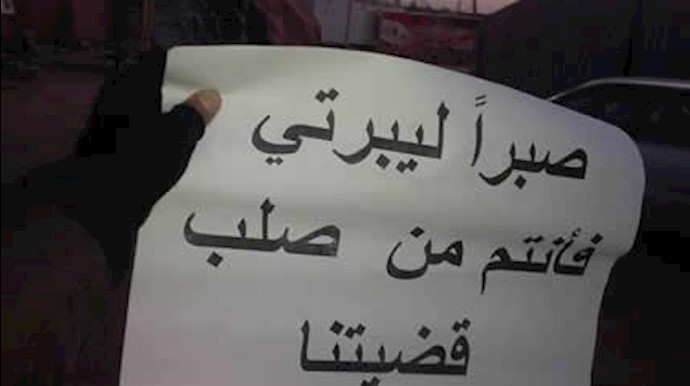 صبراً ليبرتي
فأنتم من صلب
قضيتنا